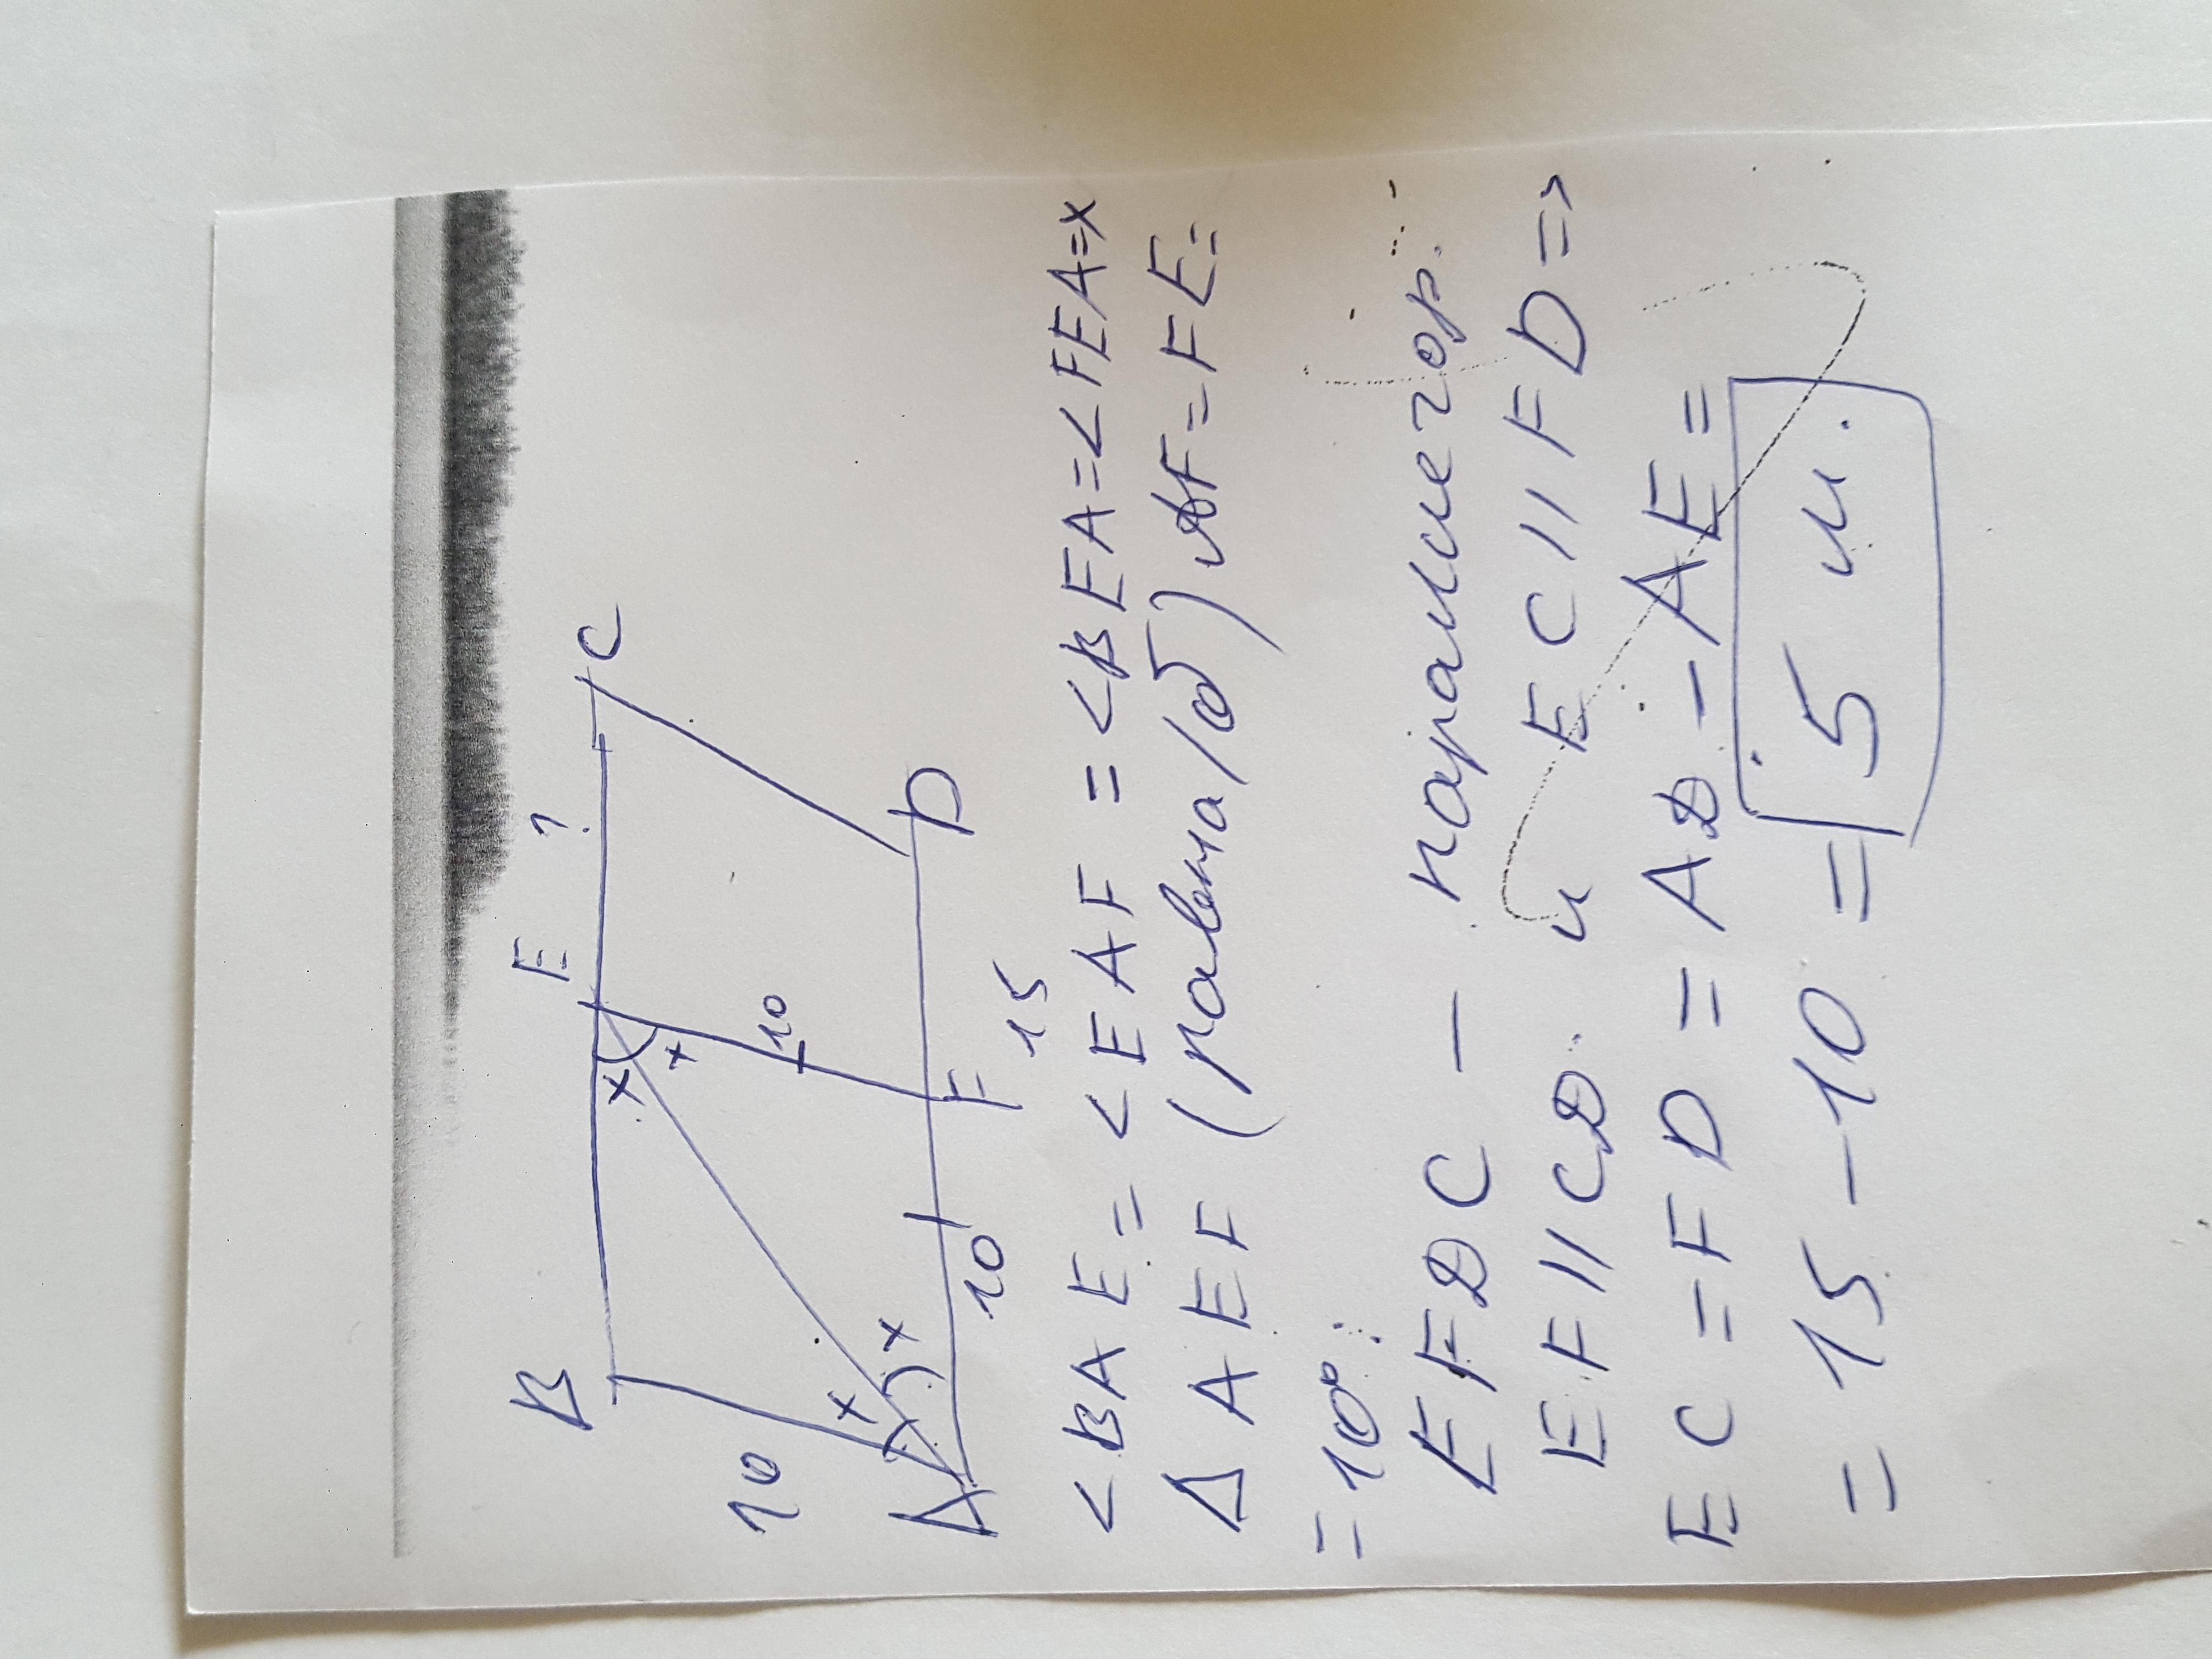 B E ? C
10 x x 10
x x
A 10 F D
15
<BAE = <EAF = <BEA = <FEA = x
Δ AEF (равенa/бд) AF = FE =
= 10°
EFDC – паралелогр.
EF || CD и EC || FD =>
EC = FD = AD - AE =
= 15 - 10 = 5 м.